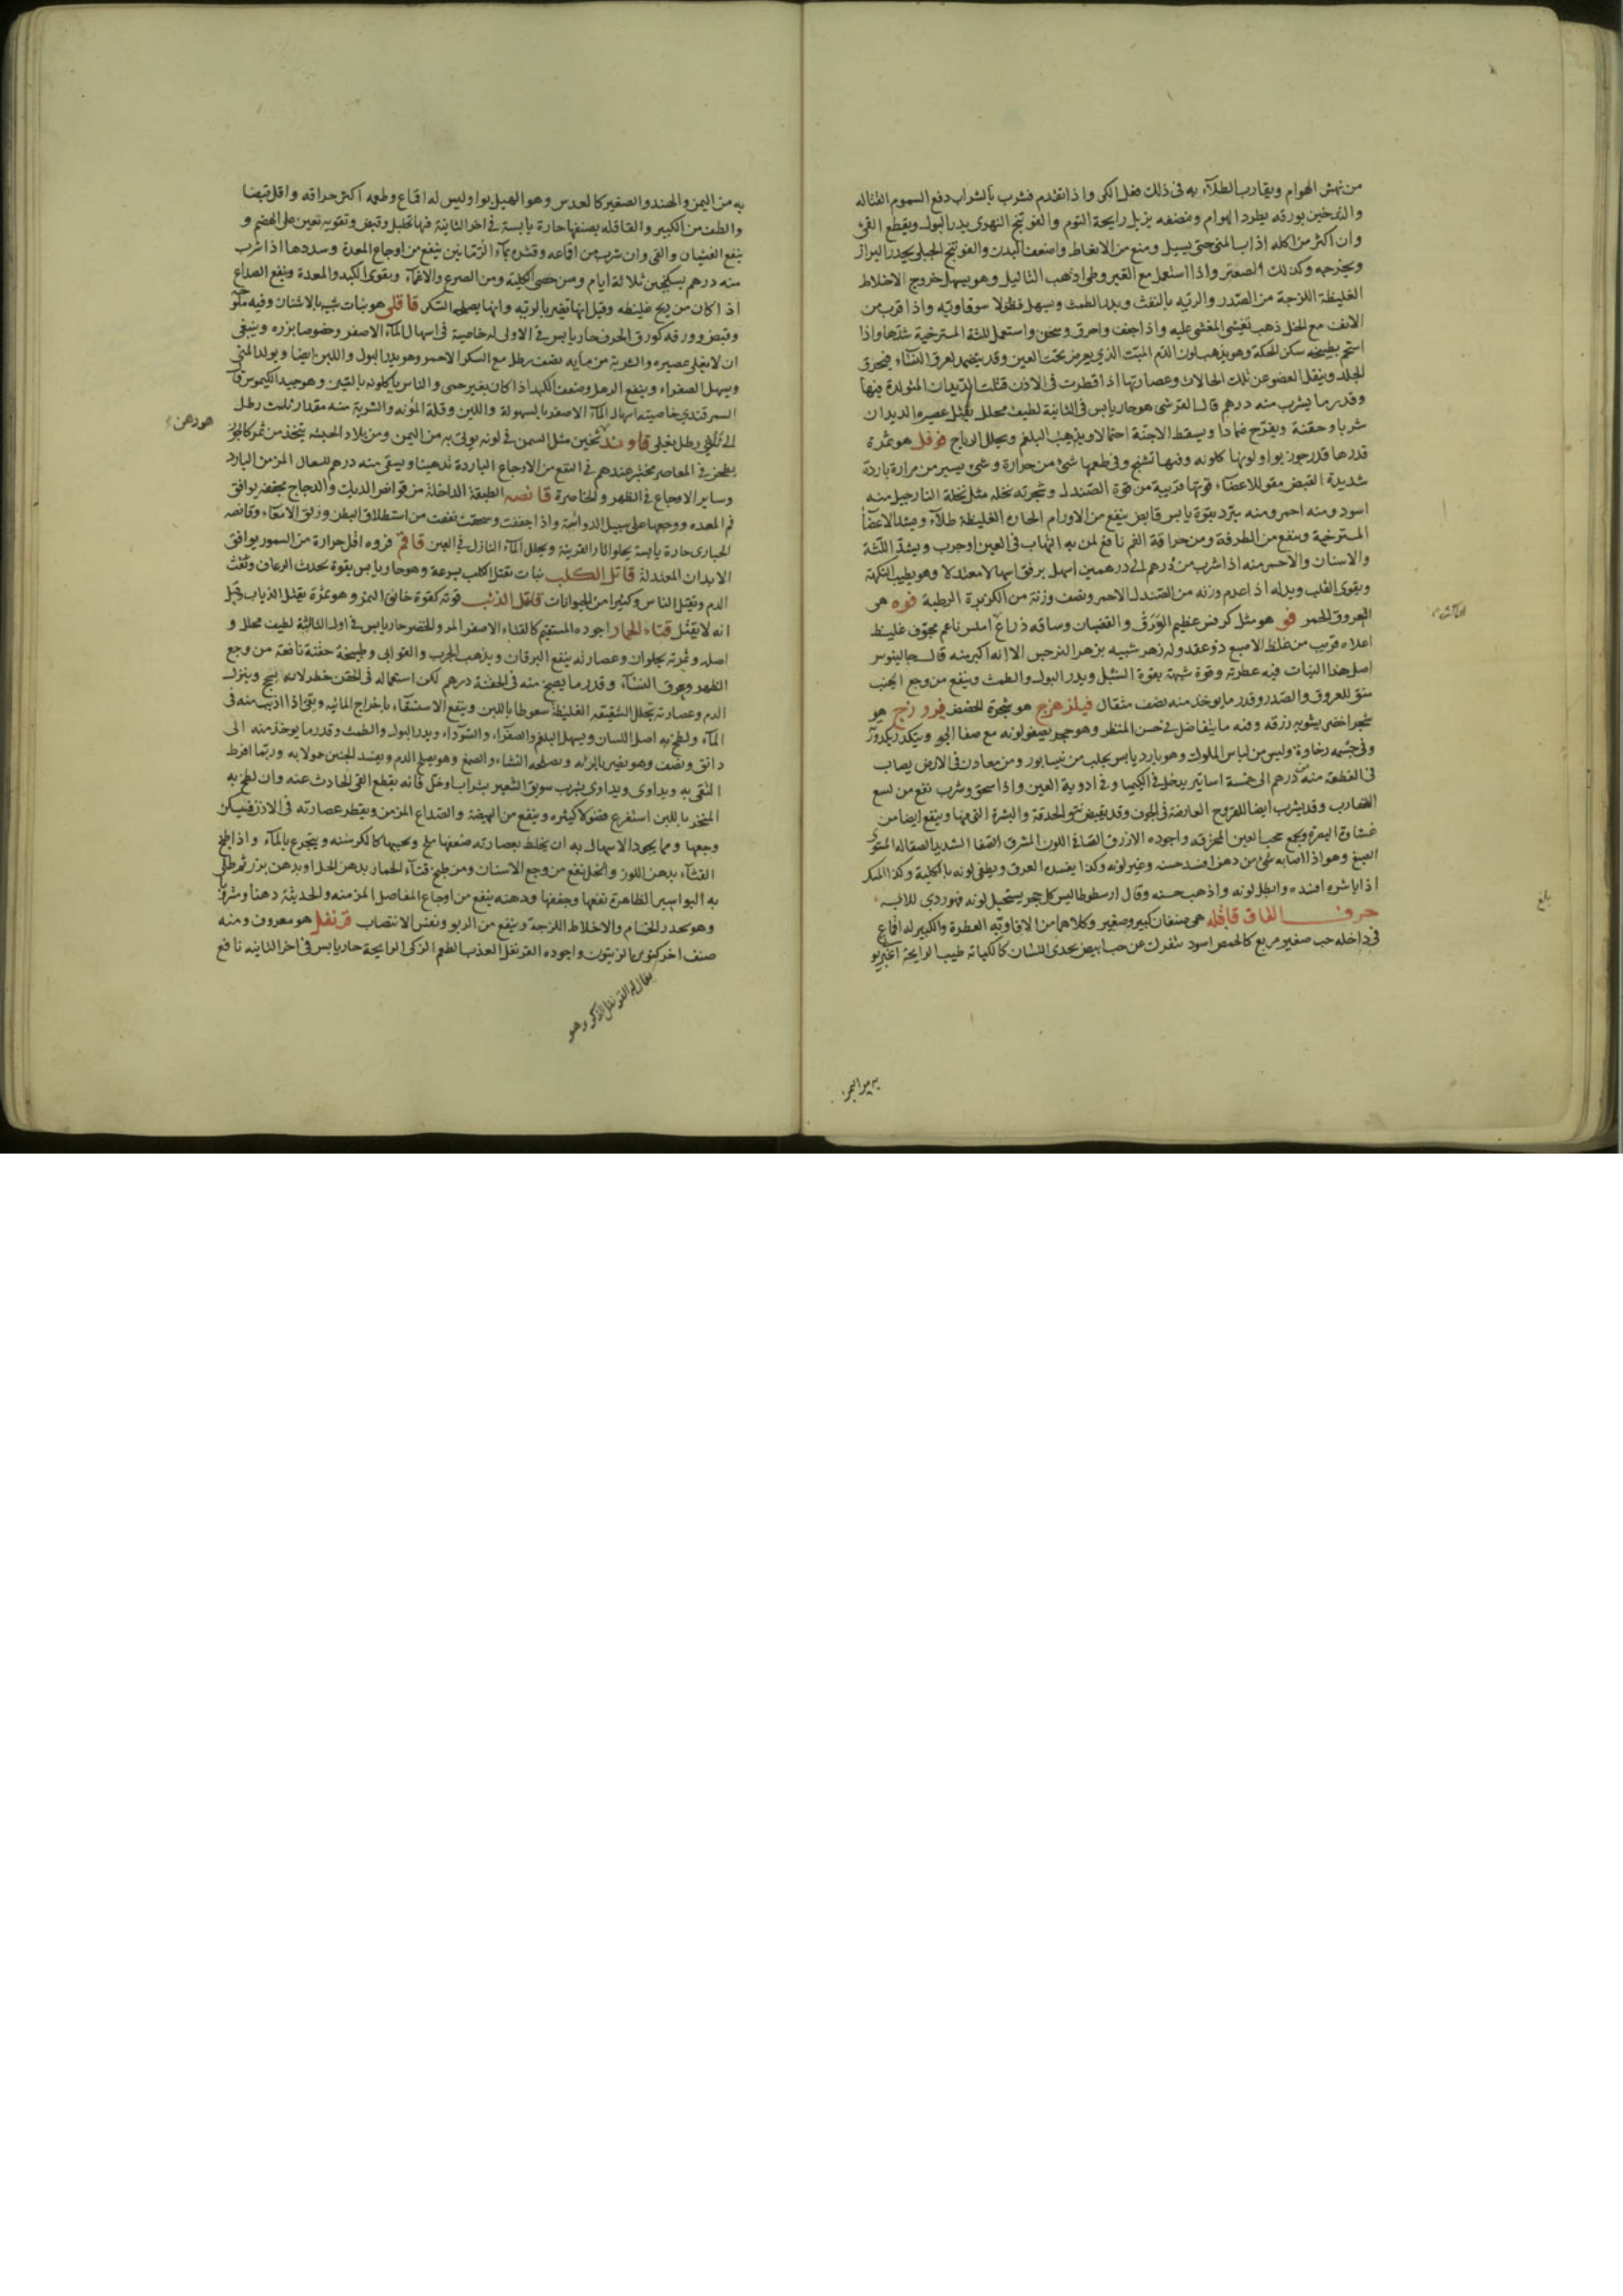 من نهش الهوام ويقارب الطلآء به فى ذلك فعل الكى واذا تقدم فشرب بالشراب دفع السموم القتاله
والتدخين بورقه يطرد الهوام ومضغه يزيل رايحة الثوم والفوتنج النهرى يدر البول ويقطع القئ
وان اكثر من اكله اذاب المنى حتى يسيل ومنع من الانعاظ واضعف البدن والفوتنج الجبلى يحدر البراز
ويخرجه وكذلك الصعتر واذا استعمل مع القيروطى اذهب الثاليل وهو يسهل خروج الاخلاط
الغليظة اللزجة من الصّدر والريّه بالنفث ويدر الطمث ويسهل فضولا سوداويّه واذا قرب من
الانف مع الخل ذهب تغشى المغشى عليه واذا جفف واحرق وسحق واستعمل للثة المسترخية شدّها واذا
استحم بطبيخه سكن الحكة وهو يذهب لون الدّم الميّت الذى يعرض تحت العين وقد يضمد لعرق النّسآء فيحرق
الجلد وينقل العضو عن تلك الحالات وعصارتها اذا قطرت فى الاذن قتلت الديدان المتولدة فيها
وقدر ما يشرب منه درهم قال القرشى هو حار يابس فى الثانية لطيف محلل يقتل عصيره الديدان
شربا وحقنة ويفرّح ضمادا ويسقط الاجنّة احتمالا ويذهب البلغم ويحلل الرياح فوفل هو ثمرة
قدرها قدر جوز بوا ولونها كلونه وفيها تشنج وفى طعمها شئ من حرارة وشئ يسير من مرارة باردة
شديدة القبض مقو للاعضآء قوتها قريبة من قوة الصّندل وشجرته نخلة مثل نخلة النارجيل منه
اسود ومنه احمر ومنه يبرّد بقوة يابس قابض ينفع من الاورام الحارة الغليظة طلآء ويشد الاعضآء
المسترخية وينفع من الطرفة ومن حراقة الفم نافع لمن به التهاب فى العين اوجرب ويشدّ اللّثة
والاسنان والاحمر منه اذا شرب من درهم الى درهمين اسهل برفق اسهالا معتدلا وهو يطيب النكهة
ويقوى القلب وبدله اذا عدم وزنه من الصّندل الاحمر ونصف وزنة من الكزبرة الرطبة فوه هى
العروق الحمر فو هو مثل كرفس عظيم الوَرَق والقضبان وساقه ذراع املس ناعم مجوّف غليظ
اعلاه قريب من غلظ الاصبع ذو عقد وله زهر شبيه بزهر النرجس الا انه اكبر منه قال جالينوس
اصل هذا النبات فيه عطرية وقوة شبيهة بقوة السّنبل ويدر البول والطمث وينفع من وجع الجنب
منق للعروق والصّدر وقدر ما يوخذ منه نصف مثقال فيلزهرج هو شجرة الحضض فيروزج هو
حجر اخضر يشوبه زرقة وفيه ما يتفاضل فى حسن المنظر وهو حجر يصفو لونه مع صفآ الجو ويتكدر بكدورته
وفى جسمه رخاوة وليس من لباس الملوك وهو بارد يابس يجلب من نيسابور ومن معادن فى الارض يصاب
فى القطعة منه درهم الى خمسة اساتير يدخل فى الكيميا وفى ادوية العين واذا سحق وشرب نفع من لسع
العقارب وقد يشرب ايضا للقروح العارضة فى الجوف وقد يقبض نتو الحدقة والبثرة التى فيها وينفع ايضا من
غشاوة البصر ويجمع حجب العين المنخرقه واجوده الازرق الصافى اللون المشرق الصّفا الشديد الصقالة المستوى
الصبغ وهو اذا اصابه شئ من دهن افسد حسنه وغير لونه وكذا يفسده العرق ويطفى لونه بالكلية وكذا المسك
اذا باشره افسده وابطل لونه واذهب حسنه وقال ارسطوطاليس كل حجر يستحيل لونه فهو ردى للابسه
حرف القاف قاقله هى صنفان كبير وصغير وكلاهما من الافاويّه العطرة والكبير له اقماع
فى داخله حب صغير مربع كالحمص اسود ينفرك عن حب ابيض يحذى اللسان كالكبابة طيب الرايحة اغبر يو
به من اليمن
بلغ
به من اليمن والهند والصغير كالعدس وهو الهيل بوا وليس له اقماع وطعمه اكثر حراقه واقل قبضا
والطف من الكبير والقاقله بصنفيها حارة يابسة فى اخر الثانية فيها تحليل وقبض وتقويه تعين على الهضم و
ينفع الغثيان والقى وان شرب من اقماعه وقشره بمآء الرّمّانين ينفع من اوجاع المعدة وسددها اذا شرب
منه درهم بسكنجبين ثلاثة ايام ومن حصى الكلية ومن الصرع والاغمآء ويقوى الكبد والمعدة وينفع الصداع
اذا كان من ريح غليظه وقيل انها تضر بالريّه وانها يصلحه السّكر قاقلى هو نبات شبيه بالاشنان وفيه ملوحة
وقبض وورقه كورق الحرف حار يابس فى الاولى له خاصية فى اسهال المآء الاصفر وخصوصا بزره وينبغى
ان لا يغلى عصيره والشربة من مايه نصف رطل مع السكر الاحمر وهو يدر البول واللبن ايضا ويولد المنى
ويسهل الصفراء وينفع الرهل وضعف الكبد اذا كان بغير حمى والناس ياكلونه بالتين وهو جيد الكيموس قال
السمرقندى خاصيته اسهال المآء الاصفر بالسهولة واللين وقلة المؤنه والشربة منه مقدار ثلث رطل
الى ثلثى رطل يغلى قاوند ثخين مثل السمن فى لونه يؤتى به من اليمن ومن بلاد الحبشه يتخذ من ثمر كالجوز
يطحن فى المعاصر مختبر عندهم فى النفع من الاوجاع الباردة تدهينا ويسقى منه درهم للسعال المزمن البارد
وساير الاوجاع فى الظهر والخاصرة قانصه الطبقة الداخلة من قوانص الديك والدجاج يجفف يوافق
فم المعده ووجعها على سبيل الدوآء واذا جففت وسحقت نفعت من استطلاق البطن وزلق الامعآء وقانصه
الحبارى حارة يابسة يحلو اثار القرنية ويحلل المآء النازل فى العين قاقم فروه اقل حرارة من السمور يوافق
الابدان المعتدلة قاتل الكلب نبات يقتل الكلب بسرعة وهو حار يابس بقوة يحدث الرعاف ونفث
الدم ويقتل الناس وكثيرا من الحيوانات قاتل الذئب قوته كقوة خانق النمر وهو ثمرة يقتل الذياب وقيل
انه لا يقتل قثاء الحمار اجوده المستقيم كالقثاء الاصفر المر والخضر حار يابس فى اول الثالثة لطيف محلل و
اصله وثمرته يجلوان وعصارته ينفع اليرقان ويذهب الجرب والقوابى وطبيخه حقنة نافعة من وجع
الظهر وعرق النسآء وقدر ما يصلح منه فى الحقنة درهم لكن استعماله فى الحقن خطر لانه يسحج وينزل
الدم وعصارته يحلل الشقيقه الغليظة سعوطا باللبن وينفع الاستسقاء باخراج المائيه وبقى اذا اذيب منه فى
المآء ولطخ به اصل اللسان ويسهل البلغم والصفرآء والسّودآء ويدر البول والطمث وقدر ما يوخذ منه الى
دانق ونصف وهو يضر بالريّه ويصلحه النشاء والصمغ وهو يسهل الدم ويفسد الجنين حمولا به وربما افرط
التقى به ويداوى ويداوى بشرب سويق الشعير بشراب او خل فانه يقطع القى الحادث عنه وان لطخ به
المنخر باللبن استفرغ فضولا كثيره وينفع من البيضة والصّداع المزمن ويقطر عصارته فى الاذن فيسكن
وجعها ومما يجود الاسهال به ان يخلط بعصارته ضعفها ملح ويحببها كالكرسنه ويتجرع بالمآء واذا طبخ
القثآء بدهن اللوز والخل نفع من وجع الاسنان ومن طبخ قثآء الحمار بدهن الخل او بدهن بزر ثم طلى
به البواسير الظاهرة نفعها وجففها ودهنه ينفع من اوجاع المفاصل المزمنه والحديثة دهنا ومشروبا
وهو يحدر الخام والاخلاط اللزجة وينفع من الربو ونفس الانتصاب قرنفل هو معروف ومنه
صنف اخر كنوى الزيتون واجوده القرنفل العذب الطعم الزكى الرايحة حار يابس فى اخر الثانيه نافع
يقال له القرنفل الذكر وهو
هو دهن